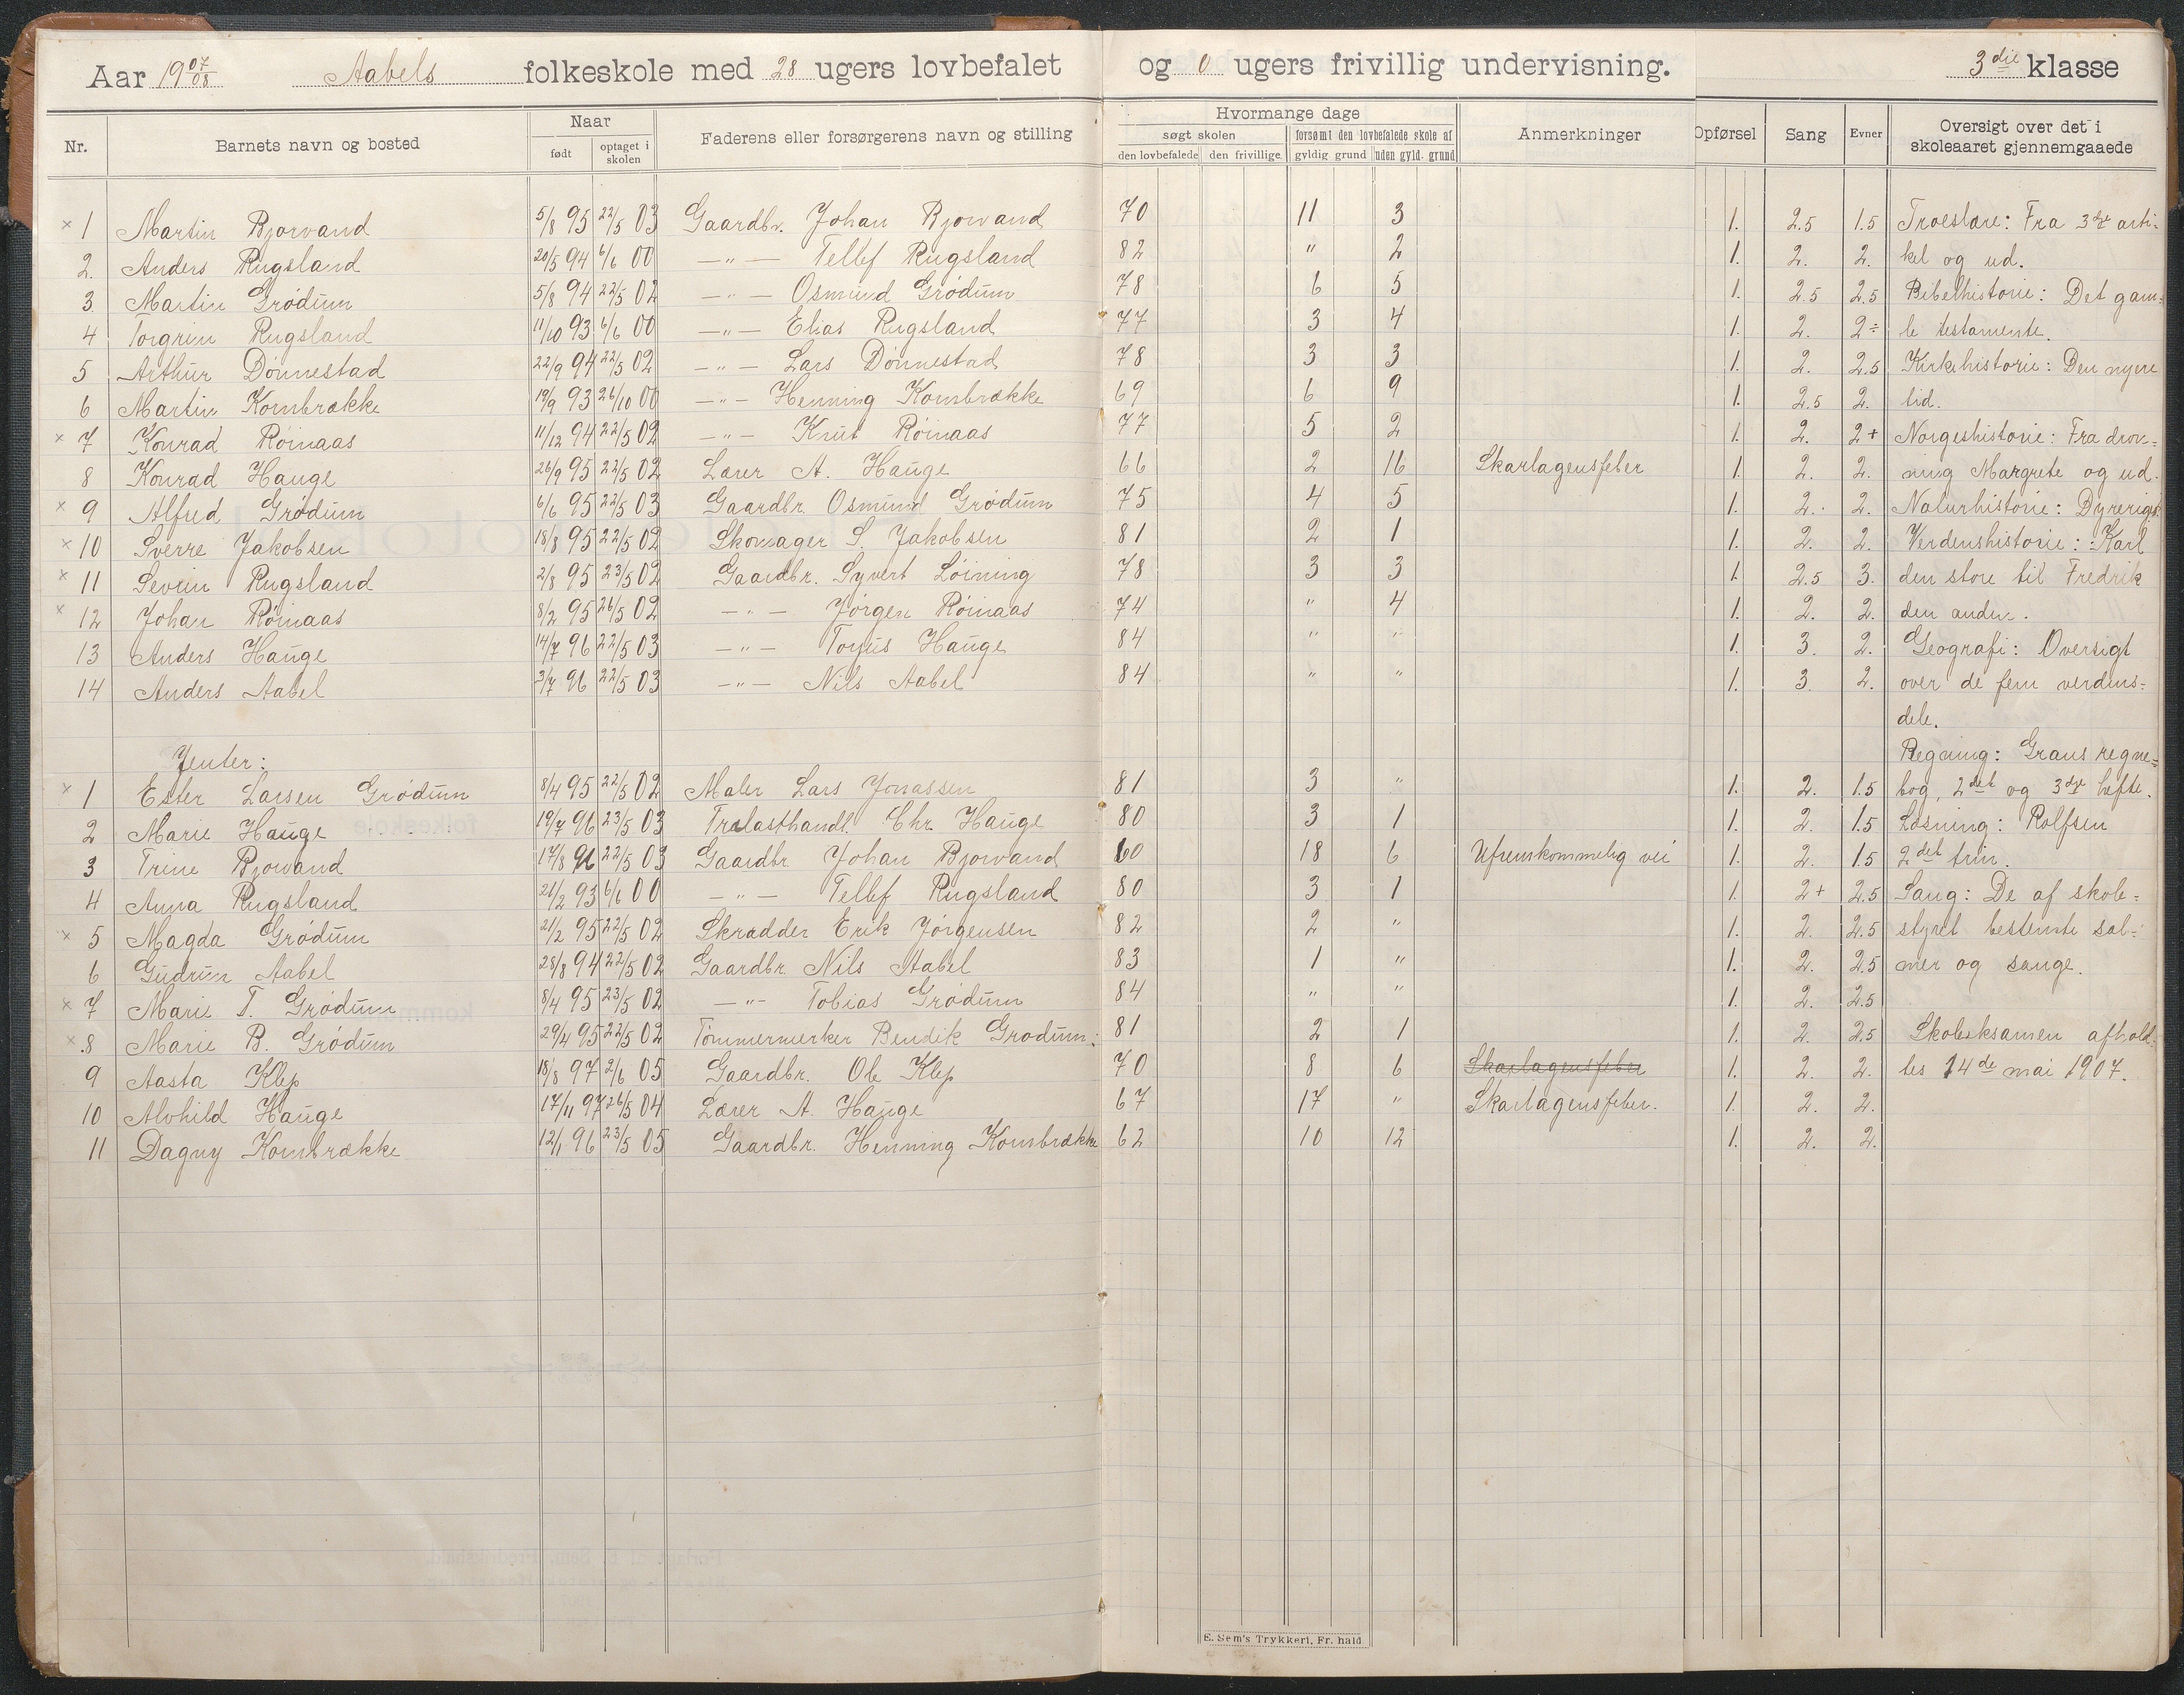 Aar 1907/08 Aabels folkeskole med 28 ugers lovbefalet og 0 ugers frivillig undervisning. 3die klasse
Nr. Barnets navn og bosted Naar født optaget i skolen Faderens eller forsørgerens navn og stilling
Hvormange dage
søgt skolen forsømt den lovbefalede skole af
den lovbefalede den frivillige gyldig grund uden gyld. grund
Anmerkninger Opførsel Sang Evner Oversigt over det i skoleaaret gjennemgaaede
× 1 Martin Bjorvand 5/8 95 22/5 03 Gaardbr. Johan Bjorvand 70 11 3 1. 2.5 1.5 Troeslære: Fra 3die arti-
2. Anders Rugsland 20/5 94 6/6 00 —"— Tellef Rugsland 82 " 2 1. 2. 2. kel og ud.
3. Martin Grødum 5/8 94 22/5 02 —"— Osmund Grødum 78 6 5 1. 2.5 2.5 Bibelhistorie: Det gam-
4 Torgrim Rugsland 11/10 93 6/6 00 —"— Elias Rugsland 77 3 4 1. 2. 2÷ le testamente.
5 Arthur Dønnestad 22/9 94 22/5 02 —"— Lars Dønnestad 78 3 3 1. 2. 2.5 Kirkehistorie: Den nyere
6 Martin Kornbrække 19/9 93 26/10 00 —"— Henning Kornbrække 69 6 9 1. 2.5 2. tid.
× 7 Konrad Røinaas 11/12 94 22/5 02 —"— Knut Røinaas 77 5 2 1. 2. 2+ Norgeshistorie: Fra dron-
8 Konrad Hauge 26/9 95 22/5 02 Lærer A. Hauge 66 2 16 Skarlagensfeber 1. 2. 2. ning Margrete og ud.
× 9 Alfred Grødum 6/6 95 22/5 03 Gaardbr. Osmund Grødum 75 4 5 1. 2. 2. Naturhistorie: Dyreriget.
× 10 Sverre Jakobsen 18/8 95 22/5 02 Skomager S. Jakobsen 81 2 1 1. 2. 2. Verdenshistorie: Karl
× 11 Severin Rugsland 2/8 95 23/5 02 Gaardbr. Syvert Løining 78 3 3 1. 2.5 3. den store til Fredrik
× 12 Johan Røinaas 8/2 95 26/5 02 —"— Jørgen Røinaas 74 " 4 1. 2. 2. den anden.
13 Anders Hauge 14/7 96 22/5 03 —"— Torjus Hauge 84 " " 1. 3. 2. Geografi: Oversigt
14 Anders Aabel 3/7 96 22/5 03 —"— Nils Aabel 84 " " 1. 3. 2. over de fem verdens-
dele.
Jenter: Regning: Grans regne-
× 1 Ester Larsen Grødum 8/4 95 22/5 02 Maler Lars Jonassen 81 3 " 1. 2. 1.5 bog, 2det og 3die hefte.
2 Marie Hauge 19/7 96 23/5 03 Trælasthandl. Chr. Hauge 80 3 1 1. 2. 1.5 Læsning: Rolfsen
3 Trine Bjorvand 17/8 96 22/5 03 Gaardbr. Johan Bjorvand 60 18 6 Ufremkommelig vei 1. 2. 1.5 2det trin.
4 Anna Rugsland 21/2 93 6/6 00 —"— Tellef Rugsland 80 3 1 1. 2+ 2.5 Sang: De af skole-
× 5 Magda Grødum 21/2 95 22/5 02 Skrædder Erik Jørgensen 82 2 " 1. 2. 2.5 styret bestemte sal-
6 Gudrun Aabel 28/8 94 22/5 02 Gaardbr. Nils Aabel 83 1 " 1. 2. 2.5 mer og sange.
× 7 Marie T. Grødum 8/4 95 23/5 02 —"— Tobias Grødum 84 " " 1. 2. 2.5
× 8 Marie B. Grødum 29/4 95 22/5 02 Tømmermerker Bendik Grødum. 81 2 1 1. 2. 2.5 Skoleeksamen afhold-
9 Aasta Klep 18/8 97 2/6 05 Gaardbr. Ole Klep 70 8 6 Skarlagensfeber 1. 2. 2. tes 14de mai 1907.
10 Alvhild Hauge 17/11 97 26/5 04 Lærer A. Hauge 67 17 " Skarlagensfeber. 1. 2. 2.
11 Dagny Kornbrække 12/1 96 23/5 05 Gaardbr. Henning Kornbrække 62 10 12 1. 2. 2.
E. Sem's Trykkeri, Fr.hald